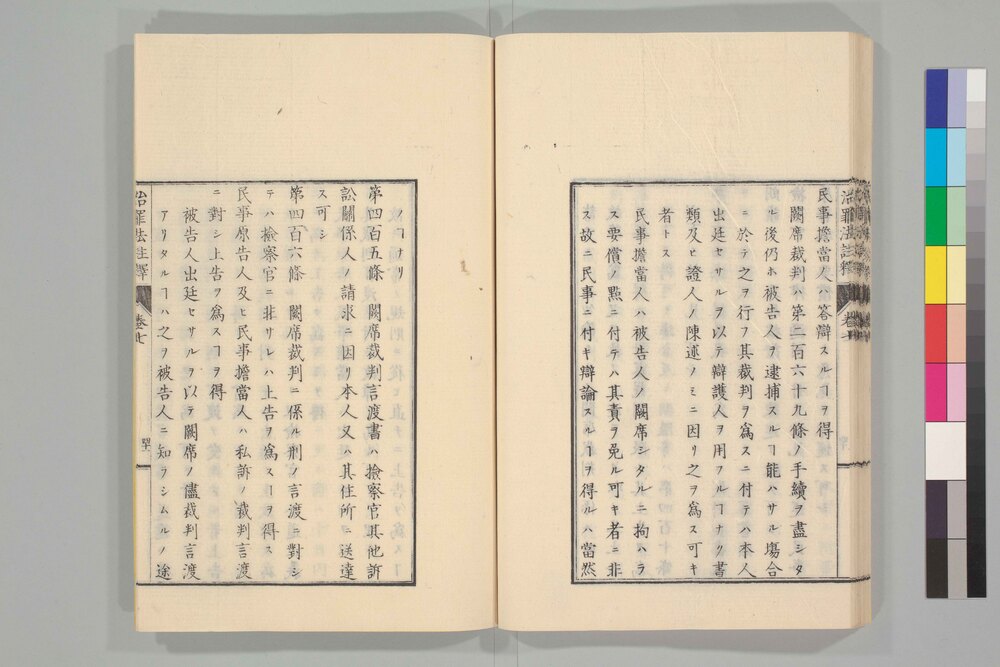 民事擔當人ハ答辯スルヿヲ得
闕席裁判ハ第二百六十九條ノ手續ヲ盡シタ
ル後仍ホ被告人ヲ逮捕スルヿ能ハサル塲合
ニ於テ之ヲ行フ其裁判ヲ爲スニ付テハ本人
出廷セサルヲ以テ辯護人ヲ用フルヿナク書
類及ヒ證人ノ陳述ノミニ因リ之ヲ爲ス可キ
者トス
民事擔當人ハ被告人ノ闕席シタルニ拘ハラ
ス要償ノ㸃ニ付テハ其責ヲ免ル可キ者ニ非
ス故ニ民事ニ付キ辯論スルヿヲ得ルハ當然
治罪法註釋
卷七
ノヿナリ
第四百五條 闕席裁判言渡書ハ檢察官其他訴
訟關係人ノ請求ニ因リ本人又ハ其住所ニ送達
ス可シ
第四百六條 闕席裁判ニ係ル刑ノ言渡ニ對シ
テハ檢察官ニ非サレハ上告ヲ爲スヿヲ得ス
民事原告人及ヒ民事擔當人ハ私訴ノ裁判言渡
ニ對シ上告ヲ爲スヿヲ得
被告人出廷セサルヲ以テ闕席ノ儘裁判言渡
アリタルヿハ之ヲ被告人ニ知ラシムルノ途
治罪法註釋
卷七